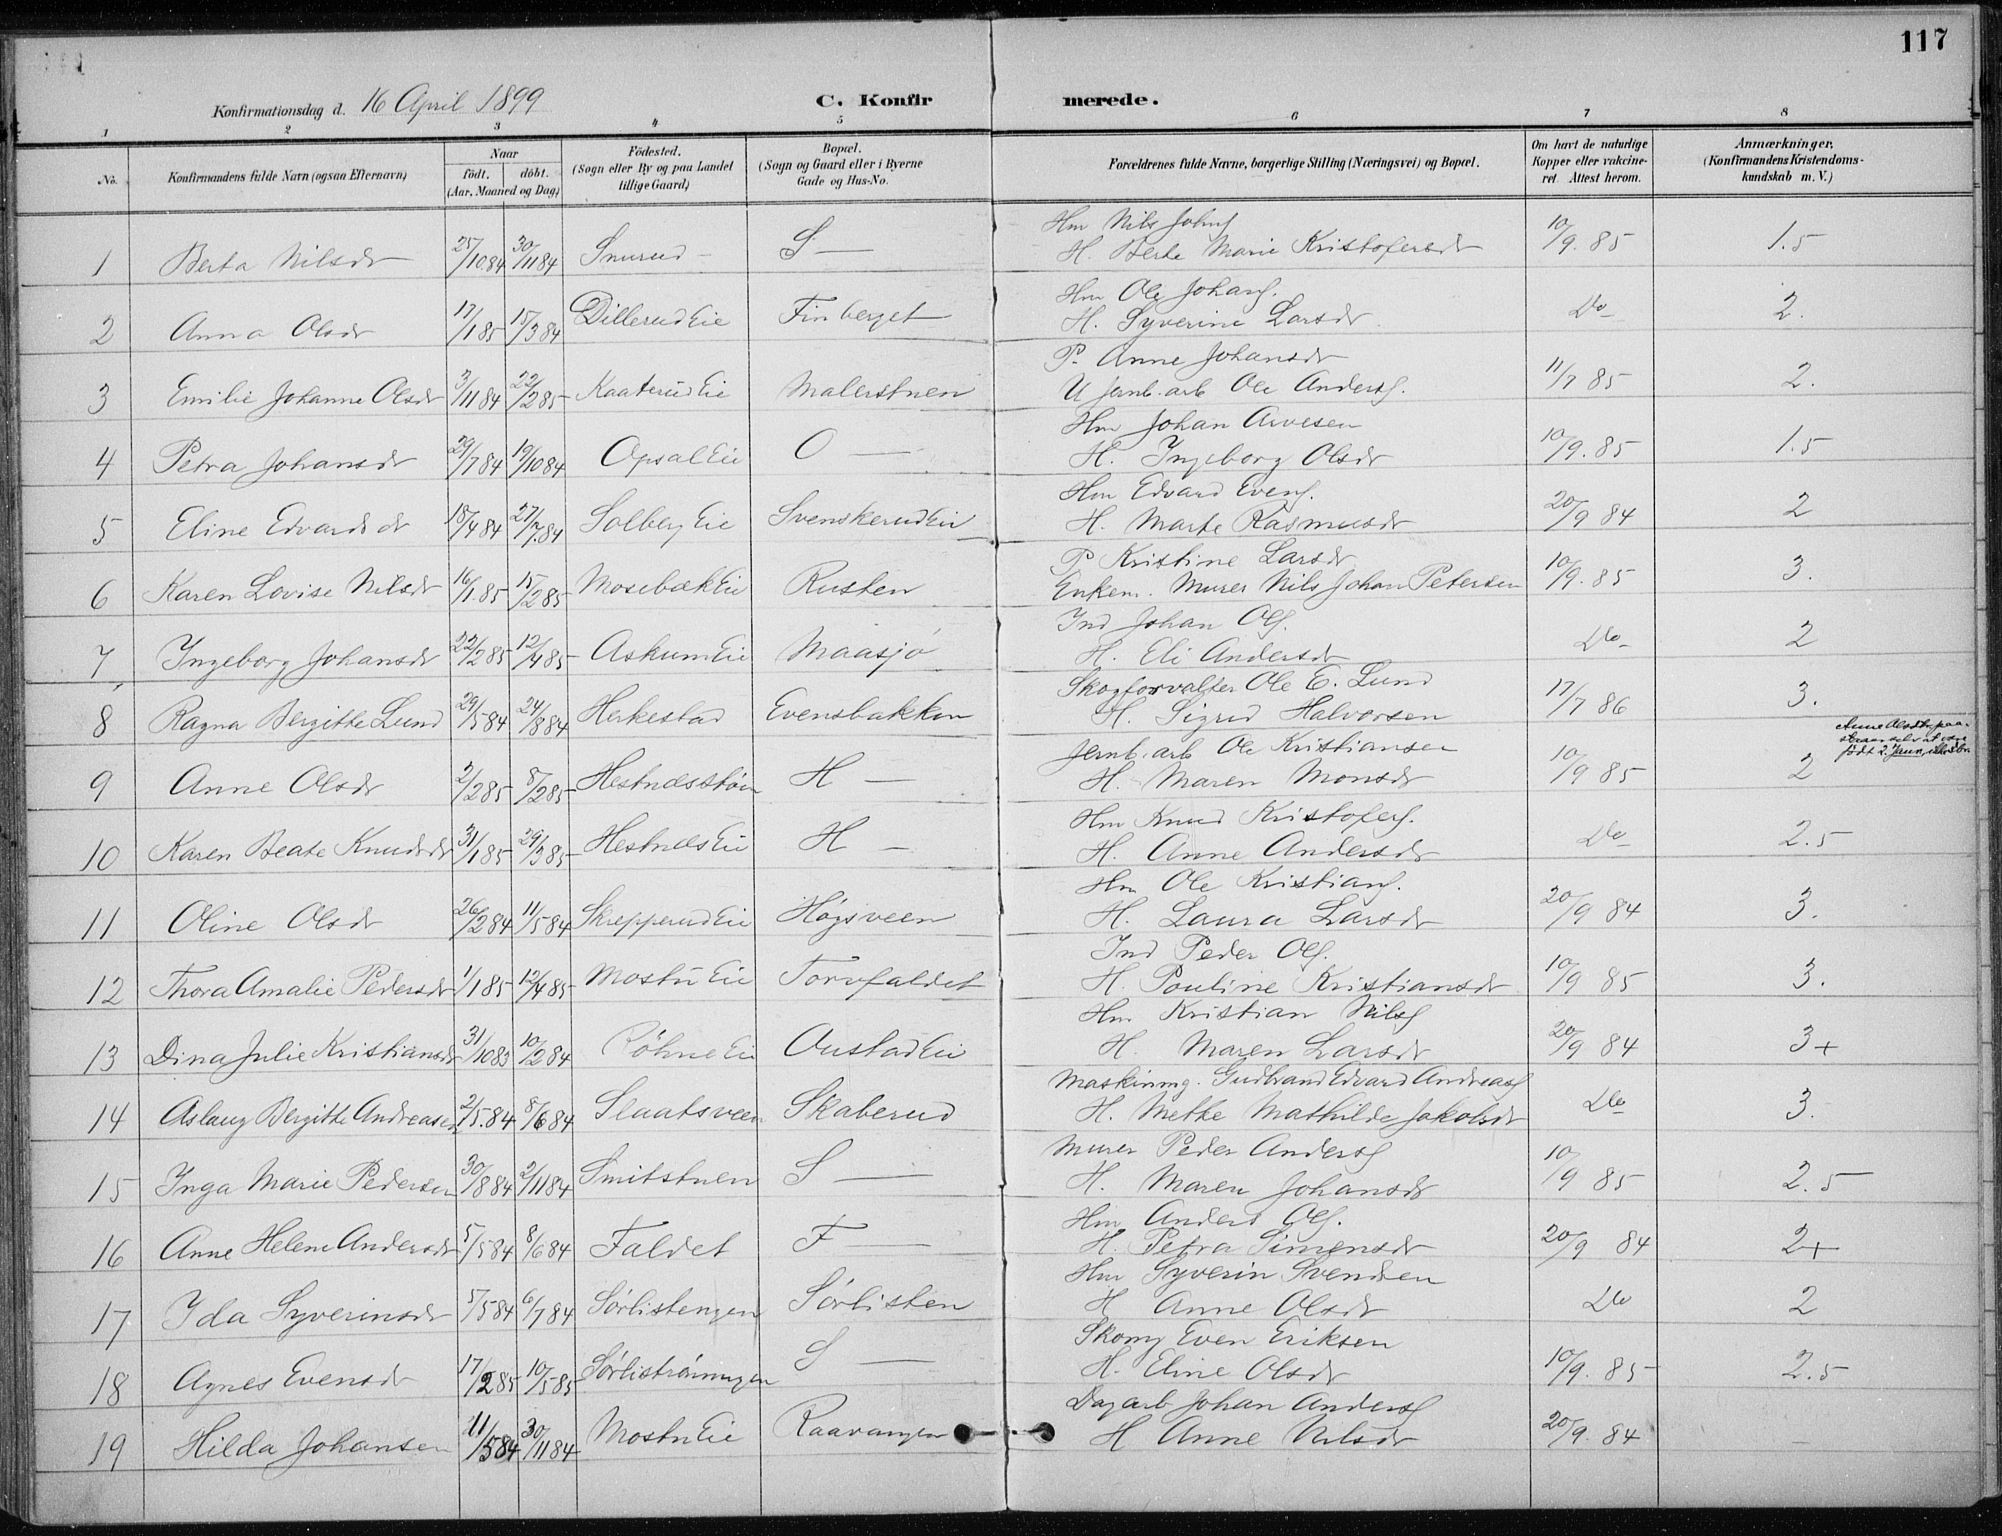 117
Konfirmationsdag d. 16 April 1899
C. Konfirmerede.
1 2 3 4 5 6 7 8
No. Konfirmandens fulde Navn (ogsaa Efternavn) Naar født. døbt. (Aar, Maaned og Dag) Fødested. (Sogn eller By og paa Landet tillige Gaard) Bopæl. (Sogn og Gaard eller i Byerne Gade og Hus-No. Forældrenes fulde Navne, borgerlige Stilling (Næringsvei) og Bopæl. Om havt de naturlige Kopper eller vakcineret Attest herom. Anmærkninger, (Konfirmandens Kristendomskundskab m. V.)
Hm Nils Johns
1 Berta Nilsdr 25/10 84 30/11 84 Snurud S — H. Berte Marie Kristofersdr 10/9. 85 1.5
Hm Ole Johans.
2 Anna Olsdr 17/1 85 15/3 84 Dillerud Eie Finberget H. Syverine Larsdr Do 2.
P. Anne Johansdr
3 Emilie Johanne Olsdr 3/11 84 22/2 85 Kaaterud Eie Malerstuen U Jernb. arb Ole Anders. 11/7 85 2.
Hm Johan Arvesen
4 Petra Johansdr 29/7 84 19/10 84 Opsal Eie O — H. Ingeborg Olsdr 10/9. 85 1.5
Hm Edvard Evens.
5 Eline Edvardsdr 18/4 84 27/7. 84 Solberg Eie Svenskerud Eie H. Marte Rasmusdr 20/9 84 2
P Kristine Larsdr
6 Karen Lovise Nilsdr 16/1. 85 15/2 85 Mosebæk Eie Rusten Enkem. Murer Nils Johan Petersen 10/9. 85 3.
Ind Johan Ols.
7 Ingeborg Johansdr 22/2 85 12/4 85 Askum Eie Maasjø H. Eli Andersdr Do 2
Skogforvalter Ole E. Lund
8 Ragna Bergitte Lund 29/5 84 24/8 84 Herkestad Evensbakken H. Sigrid Halvorsen 17/7 86 3.
Jernb. arb Ole Kristiansen
født 2. Janr.
9 Anne Olsdr 2/2 85 8/2 85 Hestnæsstøen H — H. Maren Monsdr 10/9 85 2
Hm Knud Kristofers.
10 Karen Beate Knudsdr 31/1 85 29/3 85 Hestnæs Eie H — H. Anne Andersdr Do 2.5
Hm Ole Kristians.
11 Oline Olsdr 26/2 84 11/5 84 Skrepperud Eie Høgsveen H. Laura Larsdr 20/9 84 3.
Ind Peder Ols.
12 Thora Amalie Pedersdr 1/1 85 12/4 85 Mostu Eie Torvfaldet H. Pouline Kristiansdr 10/9 85 3.
Hm Kristian Nils
13 Dina Julie Kristiansdr 31/10 83 10/2 84 Røhne Eie Oustad Eie H. Maren Larsdr 20/9 84 3+
Maskinmg. Gudbrand Edvard Andreas
14 Aslaug Bergitte Andreasen 2/5. 84 8/6 84 Slaatsveen Skaberud H. Methe Mathilde Jakobsdr Do 3.
Murer Peder Anders
15 Inga Marie Pedersen 30/8 84 2/11 84 Smitstuen S — H. Maren Johansdr 10/9 85 2.5
Hm Anders Ols.
16 Anne Helene Andersdr 5/5 84 8/6 84 Faldet F — H. Petra Simensdr 20/9 84 2+
Hm Syverin Svendsen
17 Ida Syverinsdr 5/5 84 6/7 84 Sørlistengen Sørlisten H Anne Olsdr Do 2
Skomg Even Eriksen
18 Agnes Evensdr 17/2 85 10/5 85 Sørlistrøningen S — H. Eline Olsdr 10/9. 85 2.5
Dagarb Johan Anders
19 Hilda Johansen 11/5 84 30/11 84 Mostu Eie Raavangen H Anne Nilsdr 20/9. 84 —